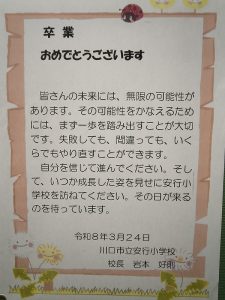 卒業
おめでとうございます
皆さんの未来には、無限の可能性が
あります。その可能性をかなえるため
には、まず一歩を踏み出すことが大切
です。失敗しても、間違っても、いく
らでもやり直すことができます。
自分を信じて進んでください。そし
て、いつか成長した姿を見せに安行小
学校を訪ねてください。その日が来る
のを待っています。
令和8年3月24日
川口市立安行小学校
校長 岩本 好則